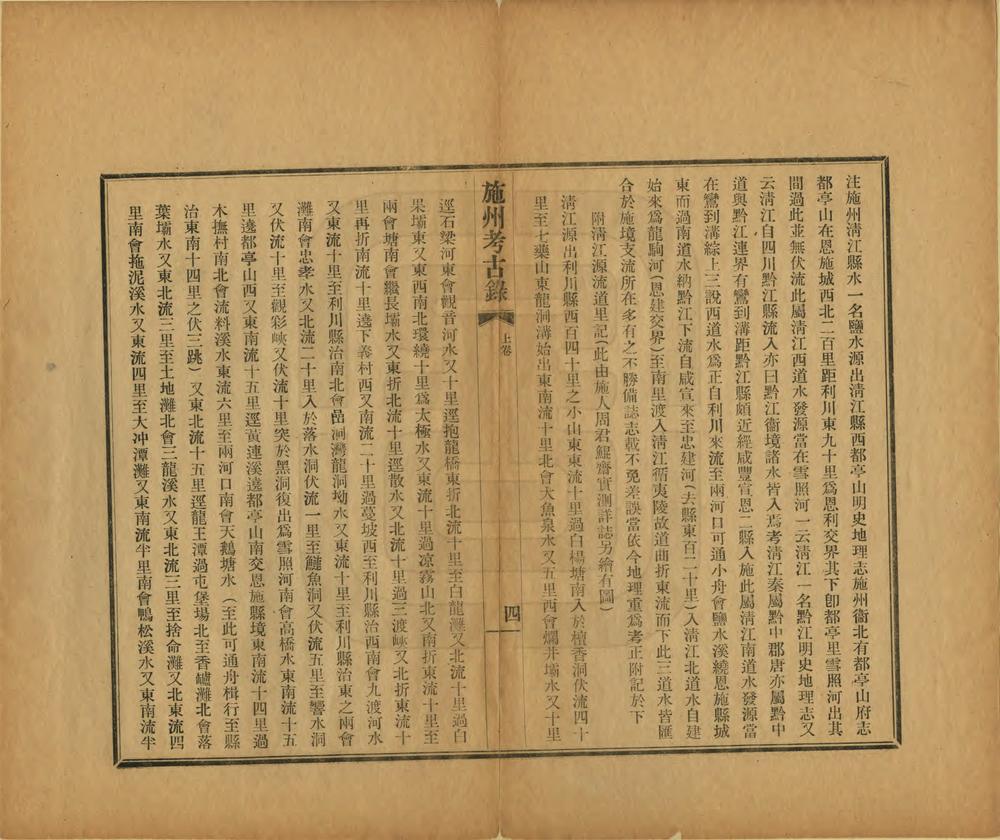 注施州淸江縣水一名鹽水源出淸江縣西都亭山明史地理志施州衞北有都亭山府志
都亭山在恩施城西北二百里距利川東九十里爲恩利交界其下卽都亭里雪照河出其
間過此並無伏流此屬淸江西道水發源當在雪照河一云淸江一名黔江明史地理志又
云淸江自四川黔江縣流入亦曰黔江衞境諸水皆入焉考淸江秦屬黔中郡唐亦屬黔中
道與黔江連界有鸞到溝距黔江縣頗近經咸豐宣恩二縣入施此屬淸江南道水發源當
在鸞到溝綜上三說西道水爲正自利川來流至兩河口可通小舟會鹽水溪繞恩施縣城
東而過南道水納黔江下流自咸宣來至忠建河（去縣東百二十里）入淸江北道水自建
始來爲龍駒河（恩建交界）至南里渡入淸江循夷陵故道曲折東流而下此三道水皆匯
合於施境支流所在多有之不勝備誌志載不免差誤當依今地理重爲考正附記於下
附淸江源流道里記（此由施人周君鯤齋實測詳誌另繪有圖）
淸江源出利川縣西百四十里之小山東東流十里過白楊塘南入於檀香洞伏流四十
里至七藥山東龍洞溝始出東南流十里北會大魚泉水又五里西會爛井壩水又十里
施州考古錄
上卷
四
逕石梁河東會觀音河水又十里逕抱龍橋東折北流十里至白龍灘又北流十里過白
果壩東又東西南北環繞十里爲太極水又東流十里過凉霧山北又南折東流十里至
兩會塘南會繼長壩水又東折北流十里逕散水又北流十里過三渡峽又北折東流十
里再折南流十里遶下義村西又南流二十里過蔓坡西至利川縣治西南會九渡河水
又東流十里至利川縣治南北會嵒洞灣龍洞坳水又東流十里至利川縣治東之兩會
灘南會忠孝水又北流二十里入於落水洞伏流一里至鰱魚洞又伏流五里至響水洞
又伏流十里至觀彩峽又伏流十里突於黑洞復出爲雪照河南會高橋水東南流十五
里遶都亭山西又東南流十五里逕黃連溪遶都亭山南交恩施縣境東南流十四里過
木撫村南北會流料溪水東流六里至兩河口南會天鵝塘水（至此可通舟楫行至縣
治東南十四里之伏三跳）又東北流十五里逕龍王潭過屯堡場北至香爐灘北會落
葉壩水又東北流三里至土地灘北會三龍溪水又東北流三里至捨命灘又北東流四
里南會拖泥溪水又東流四里至大冲潭灘又東南流半里南會鴨松溪水又東南流半